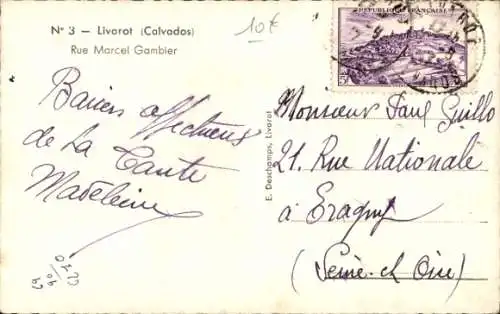 N° 3 — Livarot (Calvados)
Rue Marcel Gambier
10€
RÉPUBLIQUE FRANÇAISE
Baisers affectueux
de La Tante
Madeleine
E. Deschamps, Livarot
Monsieur Paul Guillo
21. Rue Nationale
à Eragny
(Seine-et Oise)